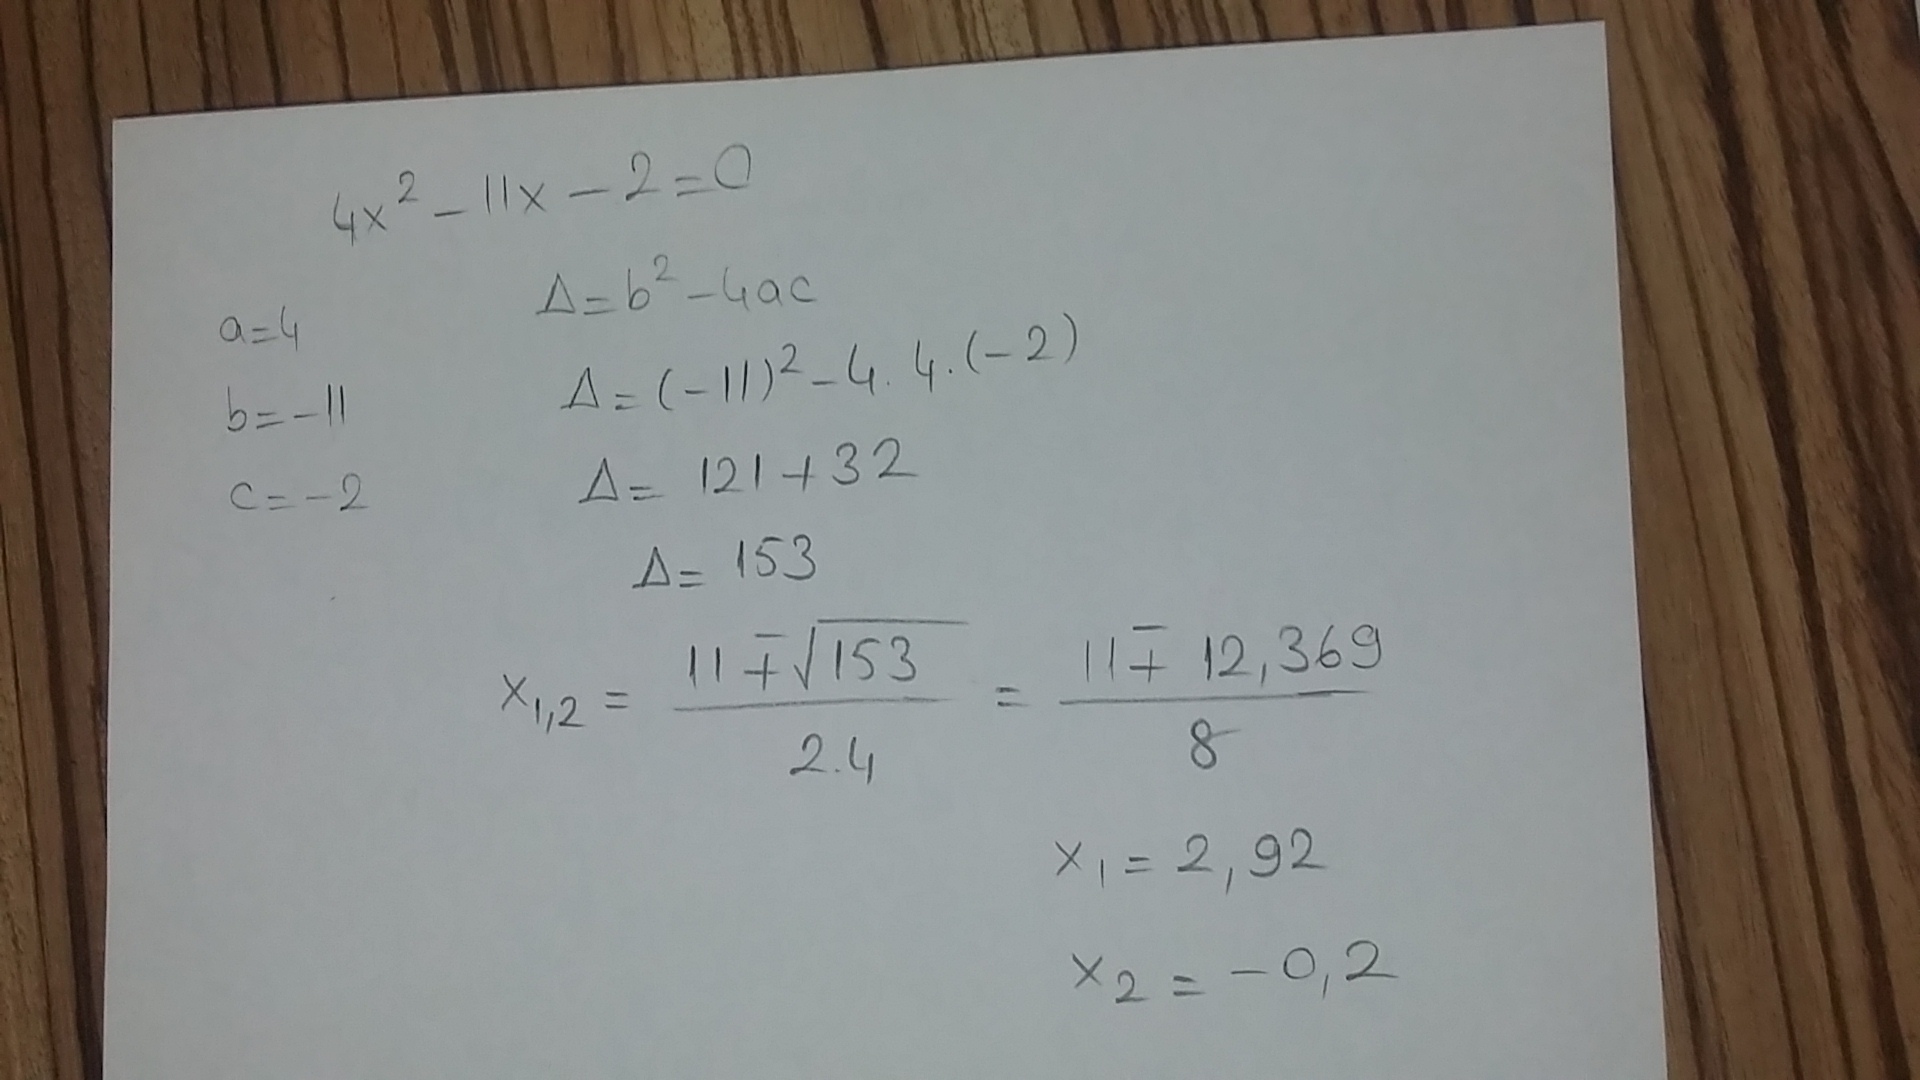 4x² - 11x - 2 = 0
a = 4
b = -11
c = -2
Δ = b² - 4ac
Δ = (-11)² - 4 . 4 . (-2)
Δ = 121 + 32
Δ = 153
x₁,₂ = (11 ∓ √153) / (2.4) = (11 ∓ 12,369) / 8
x₁ = 2,92
x₂ = -0,2